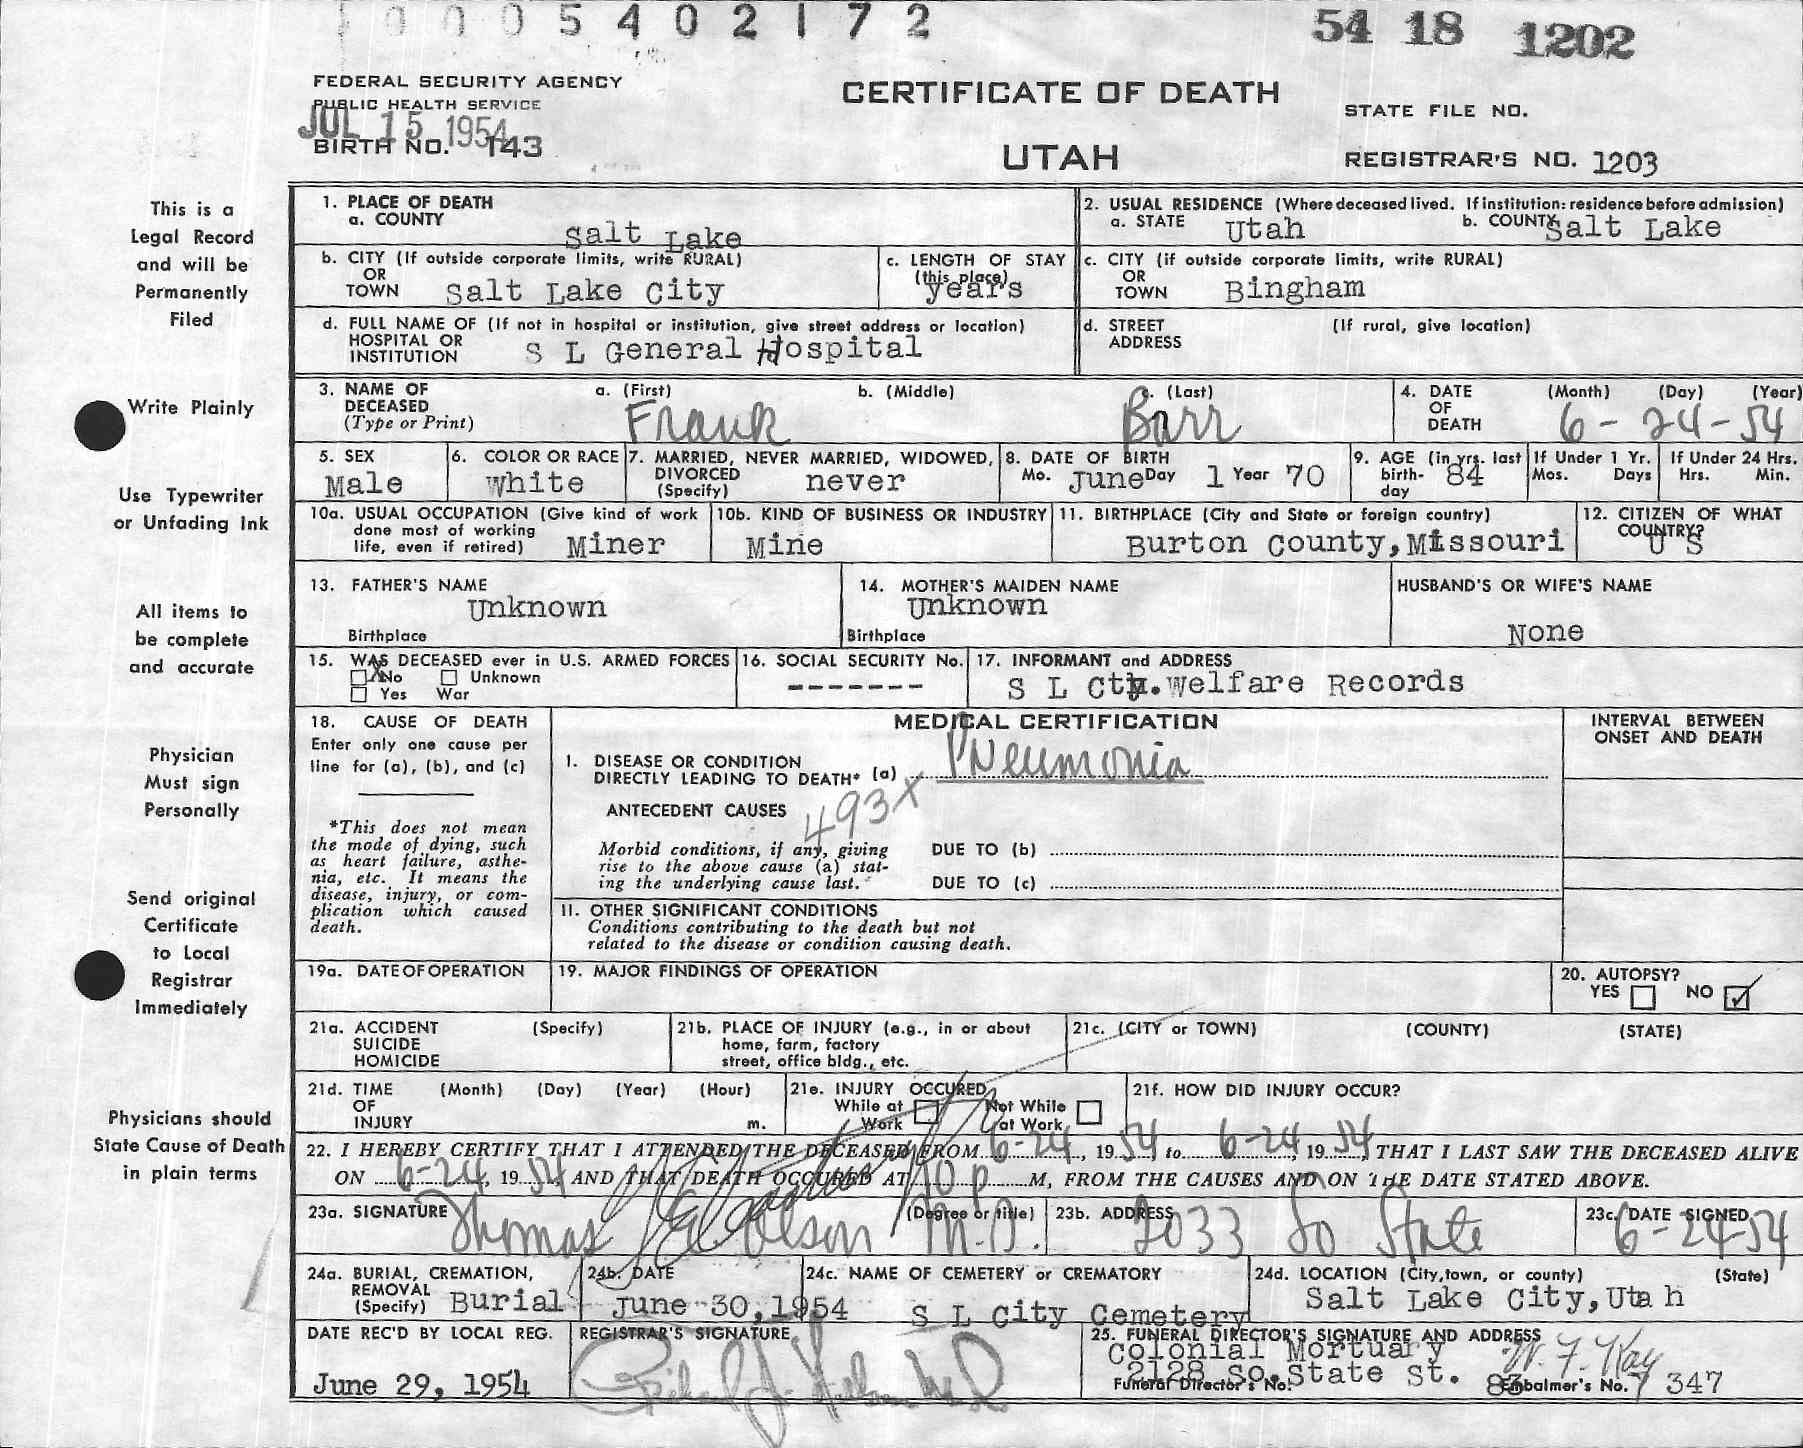 0005402172
54 18 1202
FEDERAL SECURITY AGENCY
PUBLIC HEALTH SERVICE
JUL 15 1954
BIRTH NO. 143
CERTIFICATE OF DEATH
UTAH
STATE FILE NO.
REGISTRAR'S NO. 1203
This is a
Legal Record
and will be
Permanently
Filed
Write Plainly
Use Typewriter
or Unfading Ink
All items to
be complete
and accurate
Physician
Must sign
Personally
Send original
Certificate
to Local
Registrar
Immediately
Physicians should
State Cause of Death
in plain terms
1. PLACE OF DEATH
a. COUNTY
Salt Lake
2. USUAL RESIDENCE (Where deceased lived. If institution: residence before admission)
a. STATE Utah b. COUNTY Salt Lake
b. CITY (If outside corporate limits, write RURAL)
OR
TOWN Salt Lake City
c. LENGTH OF STAY
(this place)
years
c. CITY (if outside corporate limits, write RURAL)
OR
TOWN Bingham
d. FULL NAME OF (If not in hospital or institution, give street address or location)
HOSPITAL OR
INSTITUTION S L General Hospital
d. STREET (If rural, give location)
ADDRESS
3. NAME OF a. (First) b. (Middle) c. (Last)
DECEASED
(Type or Print) Frank Barr
4. DATE (Month) (Day) (Year)
OF
DEATH 6-24-54
5. SEX
Male
6. COLOR OR RACE
White
7. MARRIED, NEVER MARRIED, WIDOWED,
DIVORCED
(Specify) never
8. DATE OF BIRTH
Mo. June Day 1 Year 70
9. AGE (in yrs. last
birth-
day 84
If Under 1 Yr.
Mos. Days
If Under 24 Hrs.
Hrs. Min.
10a. USUAL OCCUPATION (Give kind of work
done most of working
life, even if retired) Miner
10b. KIND OF BUSINESS OR INDUSTRY
Mine
11. BIRTHPLACE (City and State or foreign country)
Burton County, Missouri
12. CITIZEN OF WHAT
COUNTRY?
U S
13. FATHER'S NAME
Unknown
Birthplace
14. MOTHER'S MAIDEN NAME
Unknown
Birthplace
HUSBAND'S OR WIFE'S NAME
None
15. WAS DECEASED ever in U.S. ARMED FORCES
X No Unknown
Yes War
16. SOCIAL SECURITY No.
-------
17. INFORMANT and ADDRESS
S L Cty. Welfare Records
18. CAUSE OF DEATH
Enter only one cause per
line for (a), (b), and (c)
*This does not mean
the mode of dying, such
as heart failure, asthe-
nia, etc. It means the
disease, injury, or com-
plication which caused
death.
MEDICAL CERTIFICATION
I. DISEASE OR CONDITION
DIRECTLY LEADING TO DEATH* (a) Pneumonia
ANTECEDENT CAUSES
493X
Morbid conditions, if any, giving
rise to the above cause (a) stat-
ing the underlying cause last.
DUE TO (b)
DUE TO (c)
II. OTHER SIGNIFICANT CONDITIONS
Conditions contributing to the death but not
related to the disease or condition causing death.
INTERVAL BETWEEN
ONSET AND DEATH
19a. DATE OF OPERATION
19. MAJOR FINDINGS OF OPERATION
20. AUTOPSY?
YES NO ✓
21a. ACCIDENT (Specify)
SUICIDE
HOMICIDE
21b. PLACE OF INJURY (e.g., in or about
home, farm, factory
street, office bldg., etc.
21c. (CITY or TOWN) (COUNTY) (STATE)
21d. TIME (Month) (Day) (Year) (Hour)
OF
INJURY m.
21e. INJURY OCCURED
While at Work
Not While at Work
21f. HOW DID INJURY OCCUR?
22. I HEREBY CERTIFY THAT I ATTENDED THE DECEASED FROM 6-24, 1954 to 6-24, 1954, THAT I LAST SAW THE DECEASED ALIVE
ON 6-24, 1954, AND THAT DEATH OCCURED AT 10 p M, FROM THE CAUSES AND ON THE DATE STATED ABOVE.
23a. SIGNATURE (Degree or title)
Thomas Olson M.D.
23b. ADDRESS
2033 So State
23c. DATE SIGNED
6-24-54
24a. BURIAL, CREMATION,
REMOVAL
(Specify) Burial
24b. DATE
June 30, 1954
24c. NAME OF CEMETERY or CREMATORY
S L City Cemetery
24d. LOCATION (City, town, or county) (State)
Salt Lake City, Utah
DATE REC'D BY LOCAL REG.
June 29, 1954
REGISTRAR'S SIGNATURE
25. FUNERAL DIRECTOR'S SIGNATURE AND ADDRESS
Colonial Mortuary W. F. Kay
2128 So. State St.
Funeral Director's No. 83 Embalmer's No. 347